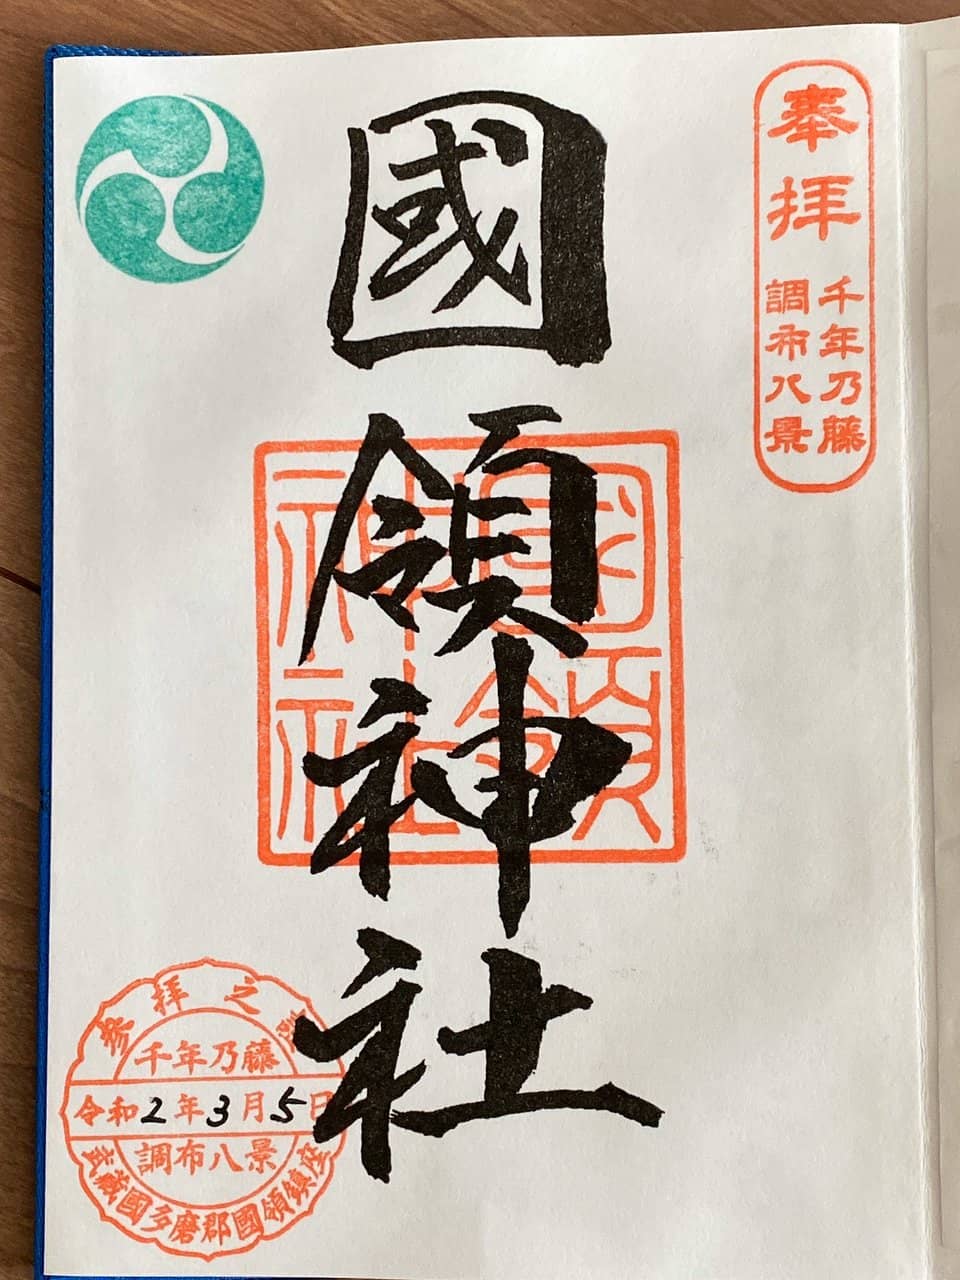 奉拝
千年乃藤
調布八景
國領神社
國領神社
参拝之
千年乃藤
令和2年3月5日
調布八景
武蔵國多磨郡國領鎮座